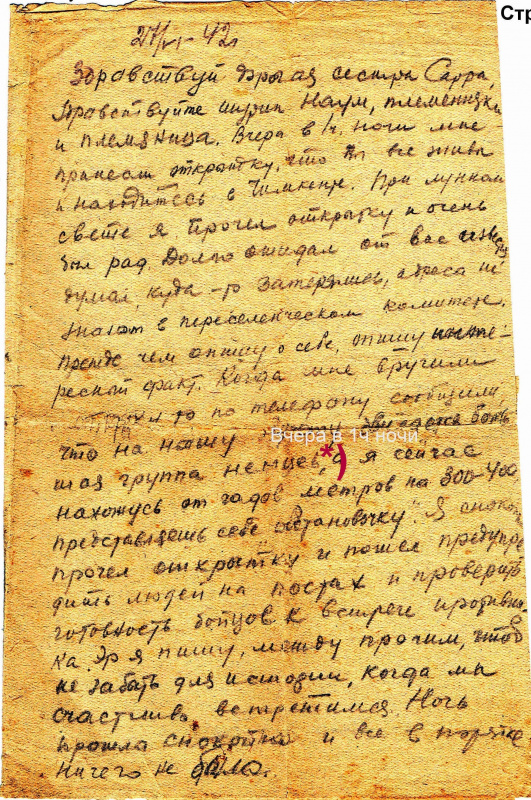 Стр
27/VI-42г.
Здравствуй дорогая сестра Сарра,
Здравствуйте шурин Наум, племянники
и племяница. Вчера в 1ч. ночи мне
принесли открытку, что вы все живы
и находитесь в Чимкенте. При лунном
свете я прочел открытку и очень
был рад. Долго ожидал от вас известия
думал, куда-то затерялись, адреса не
знают в переселенческом комитете.
Прежде чем опишу о себе, опишу инте-
ресный факт. Когда мне вручили
то по телефону сообщили,
что на нашу боль
Вчера в 1ч ночи
шая группа немцев, *) а я сейчас
нахожусь от гадов метров на 300-400
представляешь себе обстановочку". Я спокойно
прочел открытку и пошел предупре
дить людей на постах и проверить
готовность бойцов к встрече противни
ка. Эр я пишу, между прочим, чтоб
не забыть для истории, когда мы
счастливо встретимся. Ночь
прошла спокойно и все в порядке
ничего не было.